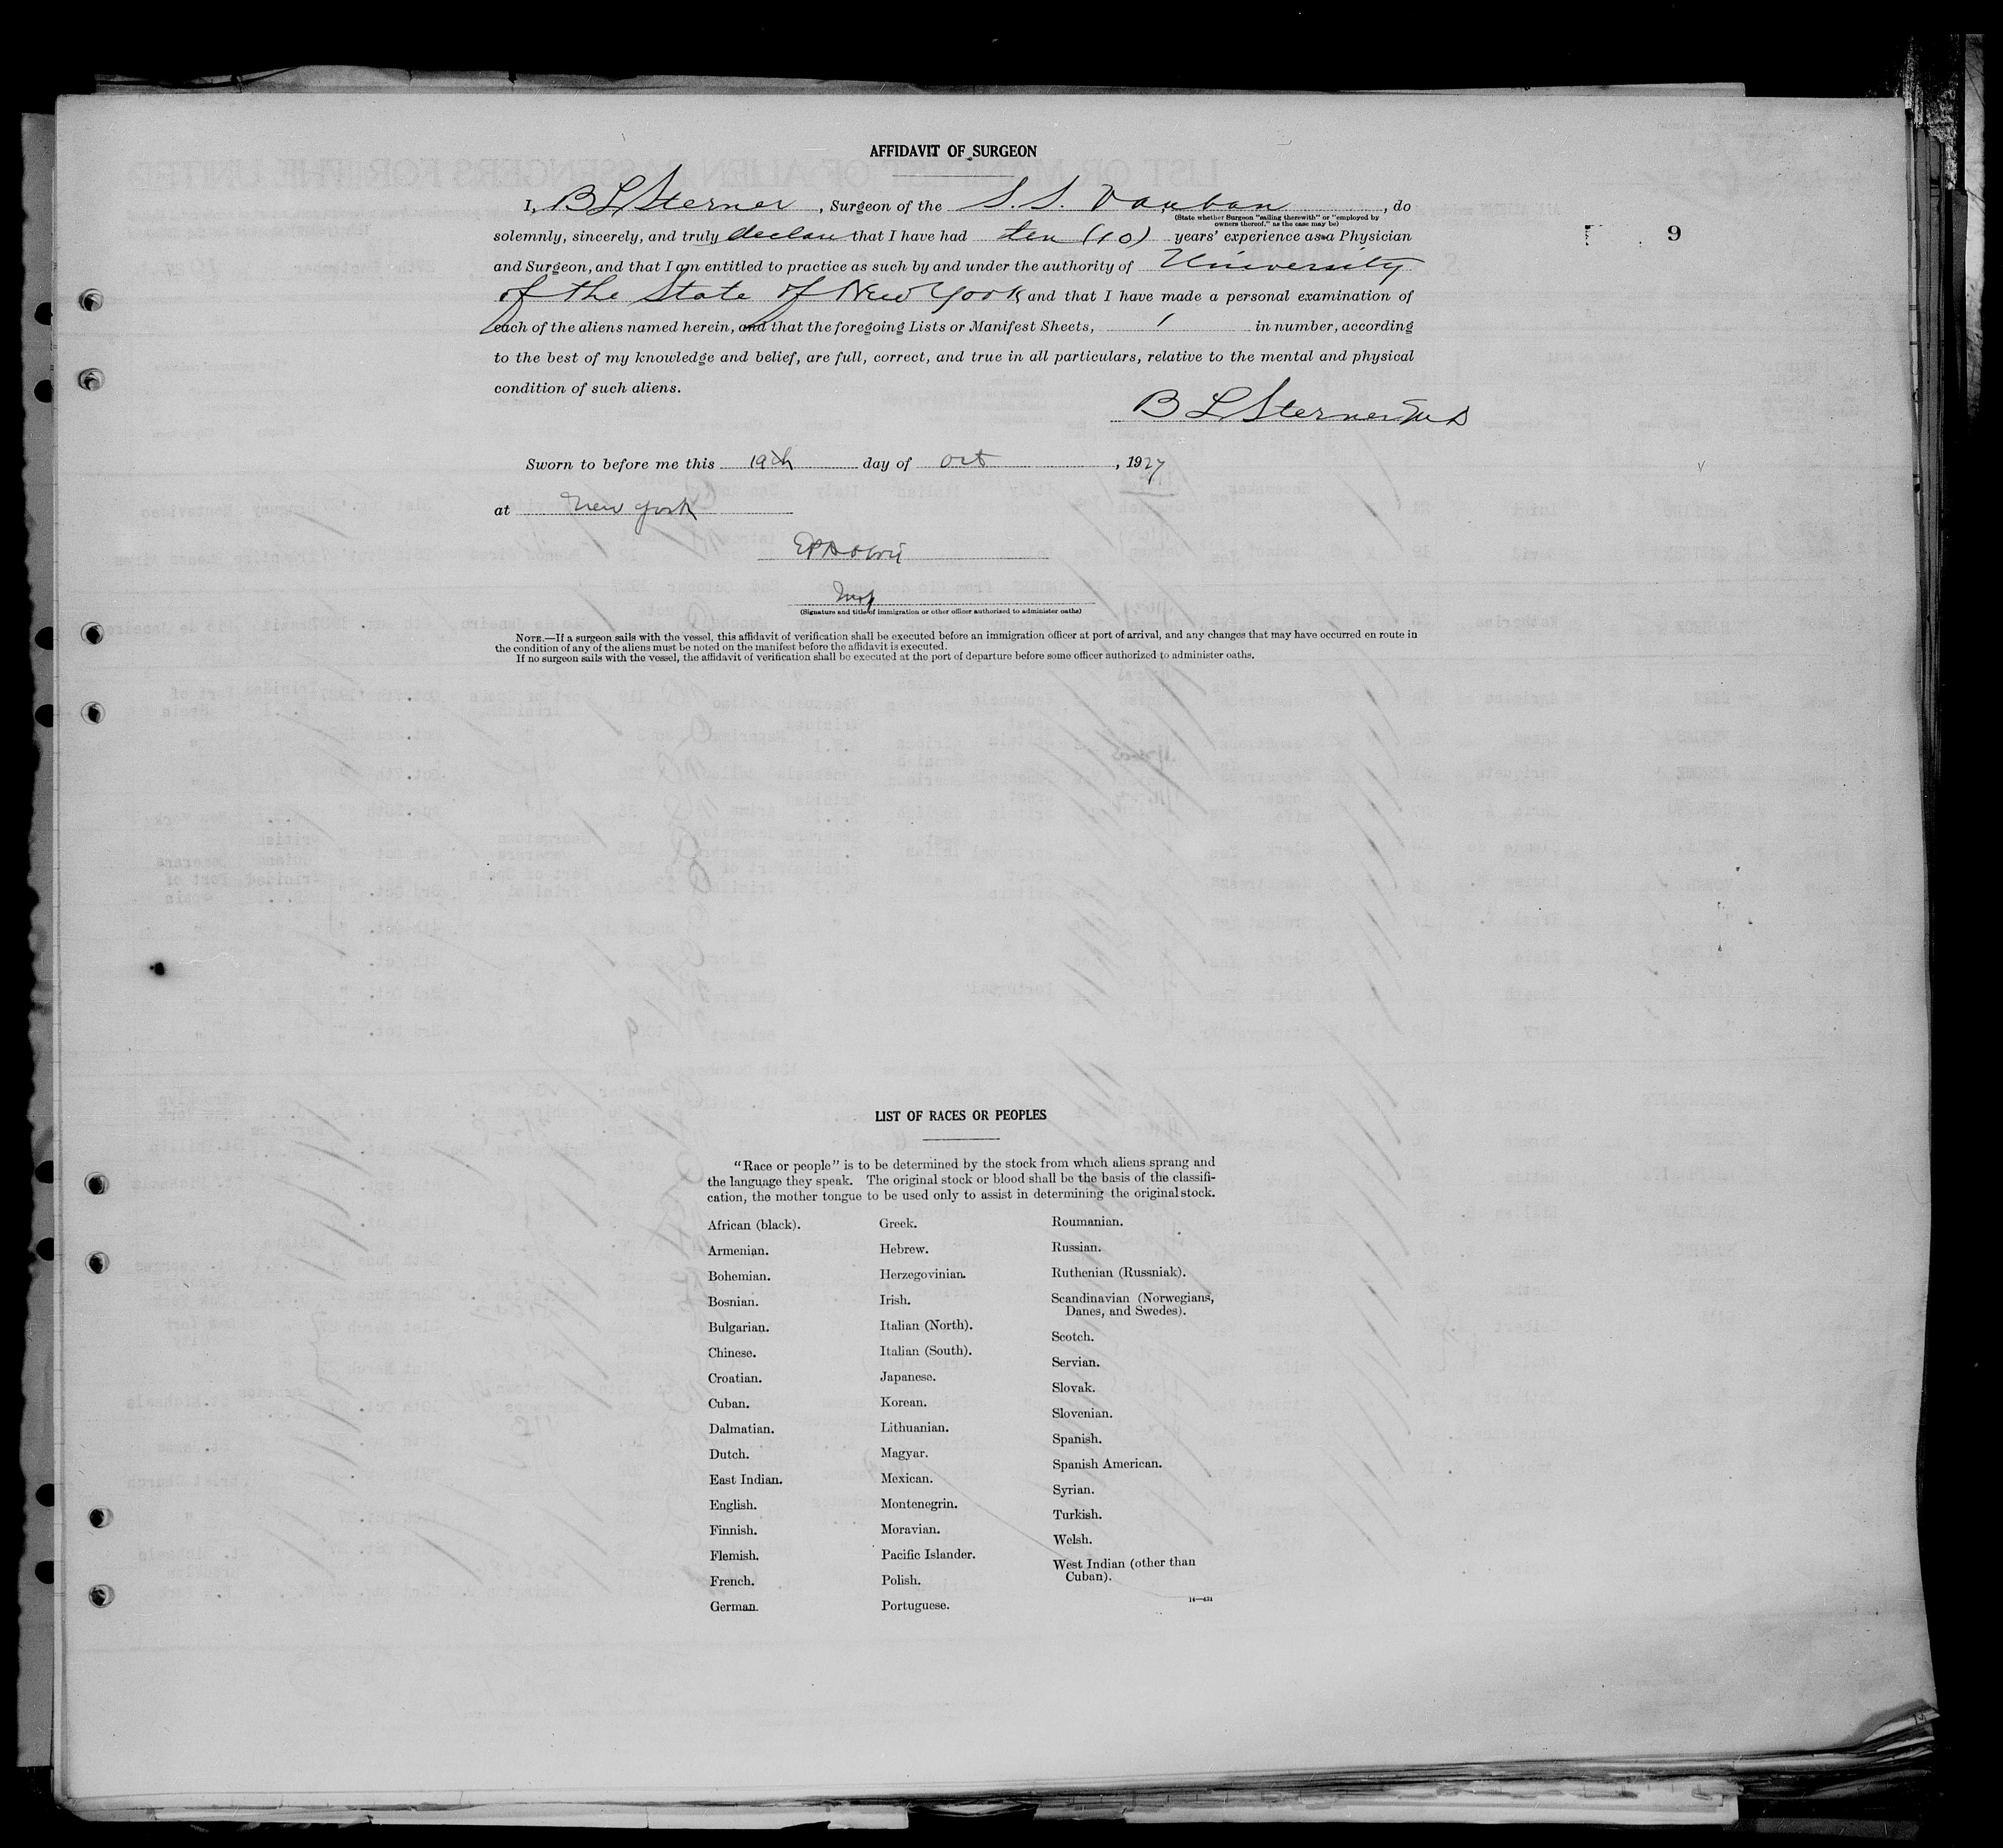 AFFIDAVIT OF SURGEON
I, B L Sterner, Surgeon of the S.S. Vauban, do
(State whether Surgeon "sailing therewith" or "employed by
owners thereof," as the case may be)
solemnly, sincerely, and truly declare that I have had ten (10) years' experience as a Physician
9
and Surgeon, and that I am entitled to practice as such by and under the authority of University
of the State of New York and that I have made a personal examination of
each of the aliens named herein, and that the foregoing Lists or Manifest Sheets, 1 in number, according
to the best of my knowledge and belief, are full, correct, and true in all particulars, relative to the mental and physical
condition of such aliens.
B L Sterner M D
Sworn to before me this 19th day of Oct, 1927
at New York
Insp
(Signature and title of immigration or other officer authorized to administer oaths)
NOTE.—If a surgeon sails with the vessel, this affidavit of verification shall be executed before an immigration officer at port of arrival, and any changes that may have occurred en route in
the condition of any of the aliens must be noted on the manifest before the affidavit is executed.
If no surgeon sails with the vessel, the affidavit of verification shall be executed at the port of departure before some officer authorized to administer oaths.
LIST OF RACES OR PEOPLES
"Race or people" is to be determined by the stock from which aliens sprang and
the language they speak. The original stock or blood shall be the basis of the classifi-
cation, the mother tongue to be used only to assist in determining the original stock.
African (black).
Armenian.
Bohemian.
Bosnian.
Bulgarian.
Chinese.
Croatian.
Cuban.
Dalmatian.
Dutch.
East Indian.
English.
Finnish.
Flemish.
French.
German.
Greek.
Hebrew.
Herzegovinian.
Irish.
Italian (North).
Italian (South).
Japanese.
Korean.
Lithuanian.
Magyar.
Mexican.
Montenegrin.
Moravian.
Pacific Islander.
Polish.
Portuguese.
Roumanian.
Russian.
Ruthenian (Russniak).
Scandinavian (Norwegians,
Danes, and Swedes).
Scotch.
Servian.
Slovak.
Slovenian.
Spanish.
Spanish American.
Syrian.
Turkish.
Welsh.
West Indian (other than
Cuban).
14—431